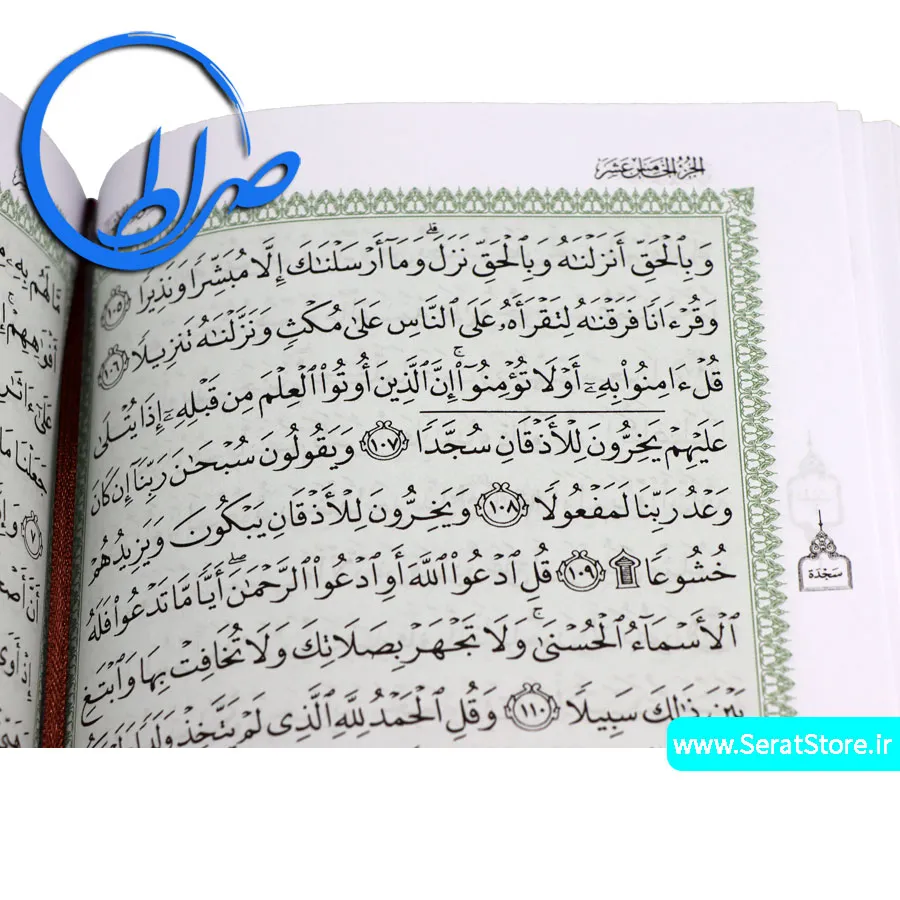 صراط
الجزء الخامس عشر
وَبِٱلْحَقِّ أَنزَلْنَٰهُ وَبِٱلْحَقِّ نَزَلَ ۗ وَمَآ أَرْسَلْنَٰكَ إِلَّا مُبَشِّرًا وَنَذِيرًا ١٠٥
وَقُرْءَانًا فَرَقْنَٰهُ لِتَقْرَأَهُۥ عَلَى ٱلنَّاسِ عَلَىٰ مُكْثٍ وَنَزَّلْنَٰهُ تَنزِيلًا ١٠٦
قُلْ ءَامِنُوا۟ بِهِۦٓ أَوْ لَا تُؤْمِنُوٓا۟ ۚ إِنَّ ٱلَّذِينَ أُوتُوا۟ ٱلْعِلْمَ مِن قَبْلِهِۦٓ إِذَا يُتْلَىٰ
عَلَيْهِمْ يَخِرُّونَ لِلْأَذْقَانِ سُجَّدًا ١٠٧ وَيَقُولُونَ سُبْحَٰنَ رَبِّنَآ إِن كَانَ
وَعْدُ رَبِّنَا لَمَفْعُولًا ١٠٨ وَيَخِرُّونَ لِلْأَذْقَانِ يَبْكُونَ وَيَزِيدُهُمْ
خُشُوعًا ۩ ١٠٩ قُلِ ٱدْعُوا۟ ٱللَّهَ أَوِ ٱدْعُوا۟ ٱلرَّحْمَٰنَ ۖ أَيًّا مَّا تَدْعُوا۟ فَلَهُ
سَجْدَة
ٱلْأَسْمَآءُ ٱلْحُسْنَىٰ ۚ وَلَا تَجْهَرْ بِصَلَاتِكَ وَلَا تُخَافِتْ بِهَا وَٱبْتَغِ
بَيْنَ ذَٰلِكَ سَبِيلًا ١١٠ وَقُلِ ٱلْحَمْدُ لِلَّهِ ٱلَّذِى لَمْ يَتَّخِذْ وَلَدًا
www.SeratStore.ir